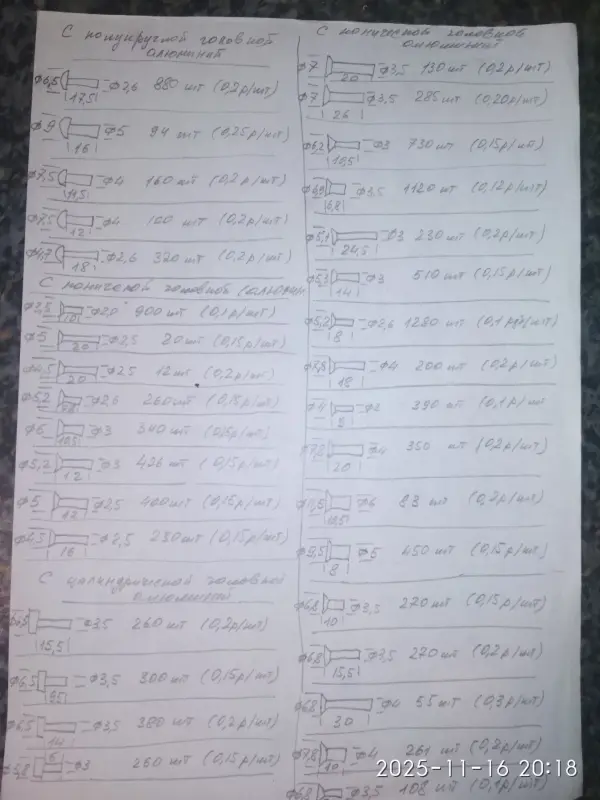 С полукруглой головкой
алюминий
ф6,5 17,5 ф2,6 880 шт (0,2р/шт)
ф9 16 ф5 94 шт (0,25р/шт)
ф7,5 14,5 ф4 160 шт (0,2р/шт)
ф7,5 12 ф4 100 шт (0,2р/шт)
ф4,7 18 ф2,6 320 шт (0,2р/шт)
С конической головкой (алюмин
10 900 шт (0,1р/шт)
ф5 20 ф2,5 20 шт (0,15р/шт)
ф4,5 20 ф2,5 12 шт (0,2р/шт)
ф5,2 ф2,6 260 шт (0,15р/шт)
ф6 10,5 ф3 340 шт (0,15р/шт)
ф5,2 12 ф3 426 шт (0,15р/шт)
ф5 12 ф2,5 400 шт (0,15р/шт)
ф4,5 16 ф2,5 230 шт (0,15р/шт)
С цилиндрической головкой
алюминий
ф6,5 15,5 ф3,5 260 шт (0,2р/шт)
ф6,5 9,5 ф3,5 300 шт (0,15р/шт)
ф6,5 14 ф3,5 380 шт (0,2р/шт)
6 ф3 260 шт (0,15р/шт)
С конической головкой
алюминий
ф7 20 ф3,5 130 шт (0,2р/шт)
ф7 26 ф3,5 285 шт (0,20р/шт)
ф6,2 10,5 ф3 730 шт (0,15р/шт)
ф6,9 6,8 ф3,5 1120 шт (0,12р/шт)
ф5,1 24,5 ф3 230 шт (0,2р/шт)
ф5,3 14 ф3 510 шт (0,15р/шт)
ф5,2 8 ф2,6 1280 шт (0,1 р/шт)
ф7,8 18 ф4 200 шт (0,2р/шт)
ф4 ф2 390 шт (0,1р/шт)
20 ф4 350 шт (0,2р/шт)
ф6 83 шт (0,2р/шт)
ф9,5 8 ф5 450 шт (0,15р/шт)
ф6,8 10 ф3,5 270 шт (0,15р/шт)
ф6,8 15,5 ф3,5 270 шт (0,2р/шт)
ф6,8 30 ф4 55 шт (0,3р/шт)
ф7,8 10 ф4 261 шт (0,2р/шт)
ф6,8 ф3,5 108 шт (0,1р/шт)
2025-11-16 20:18